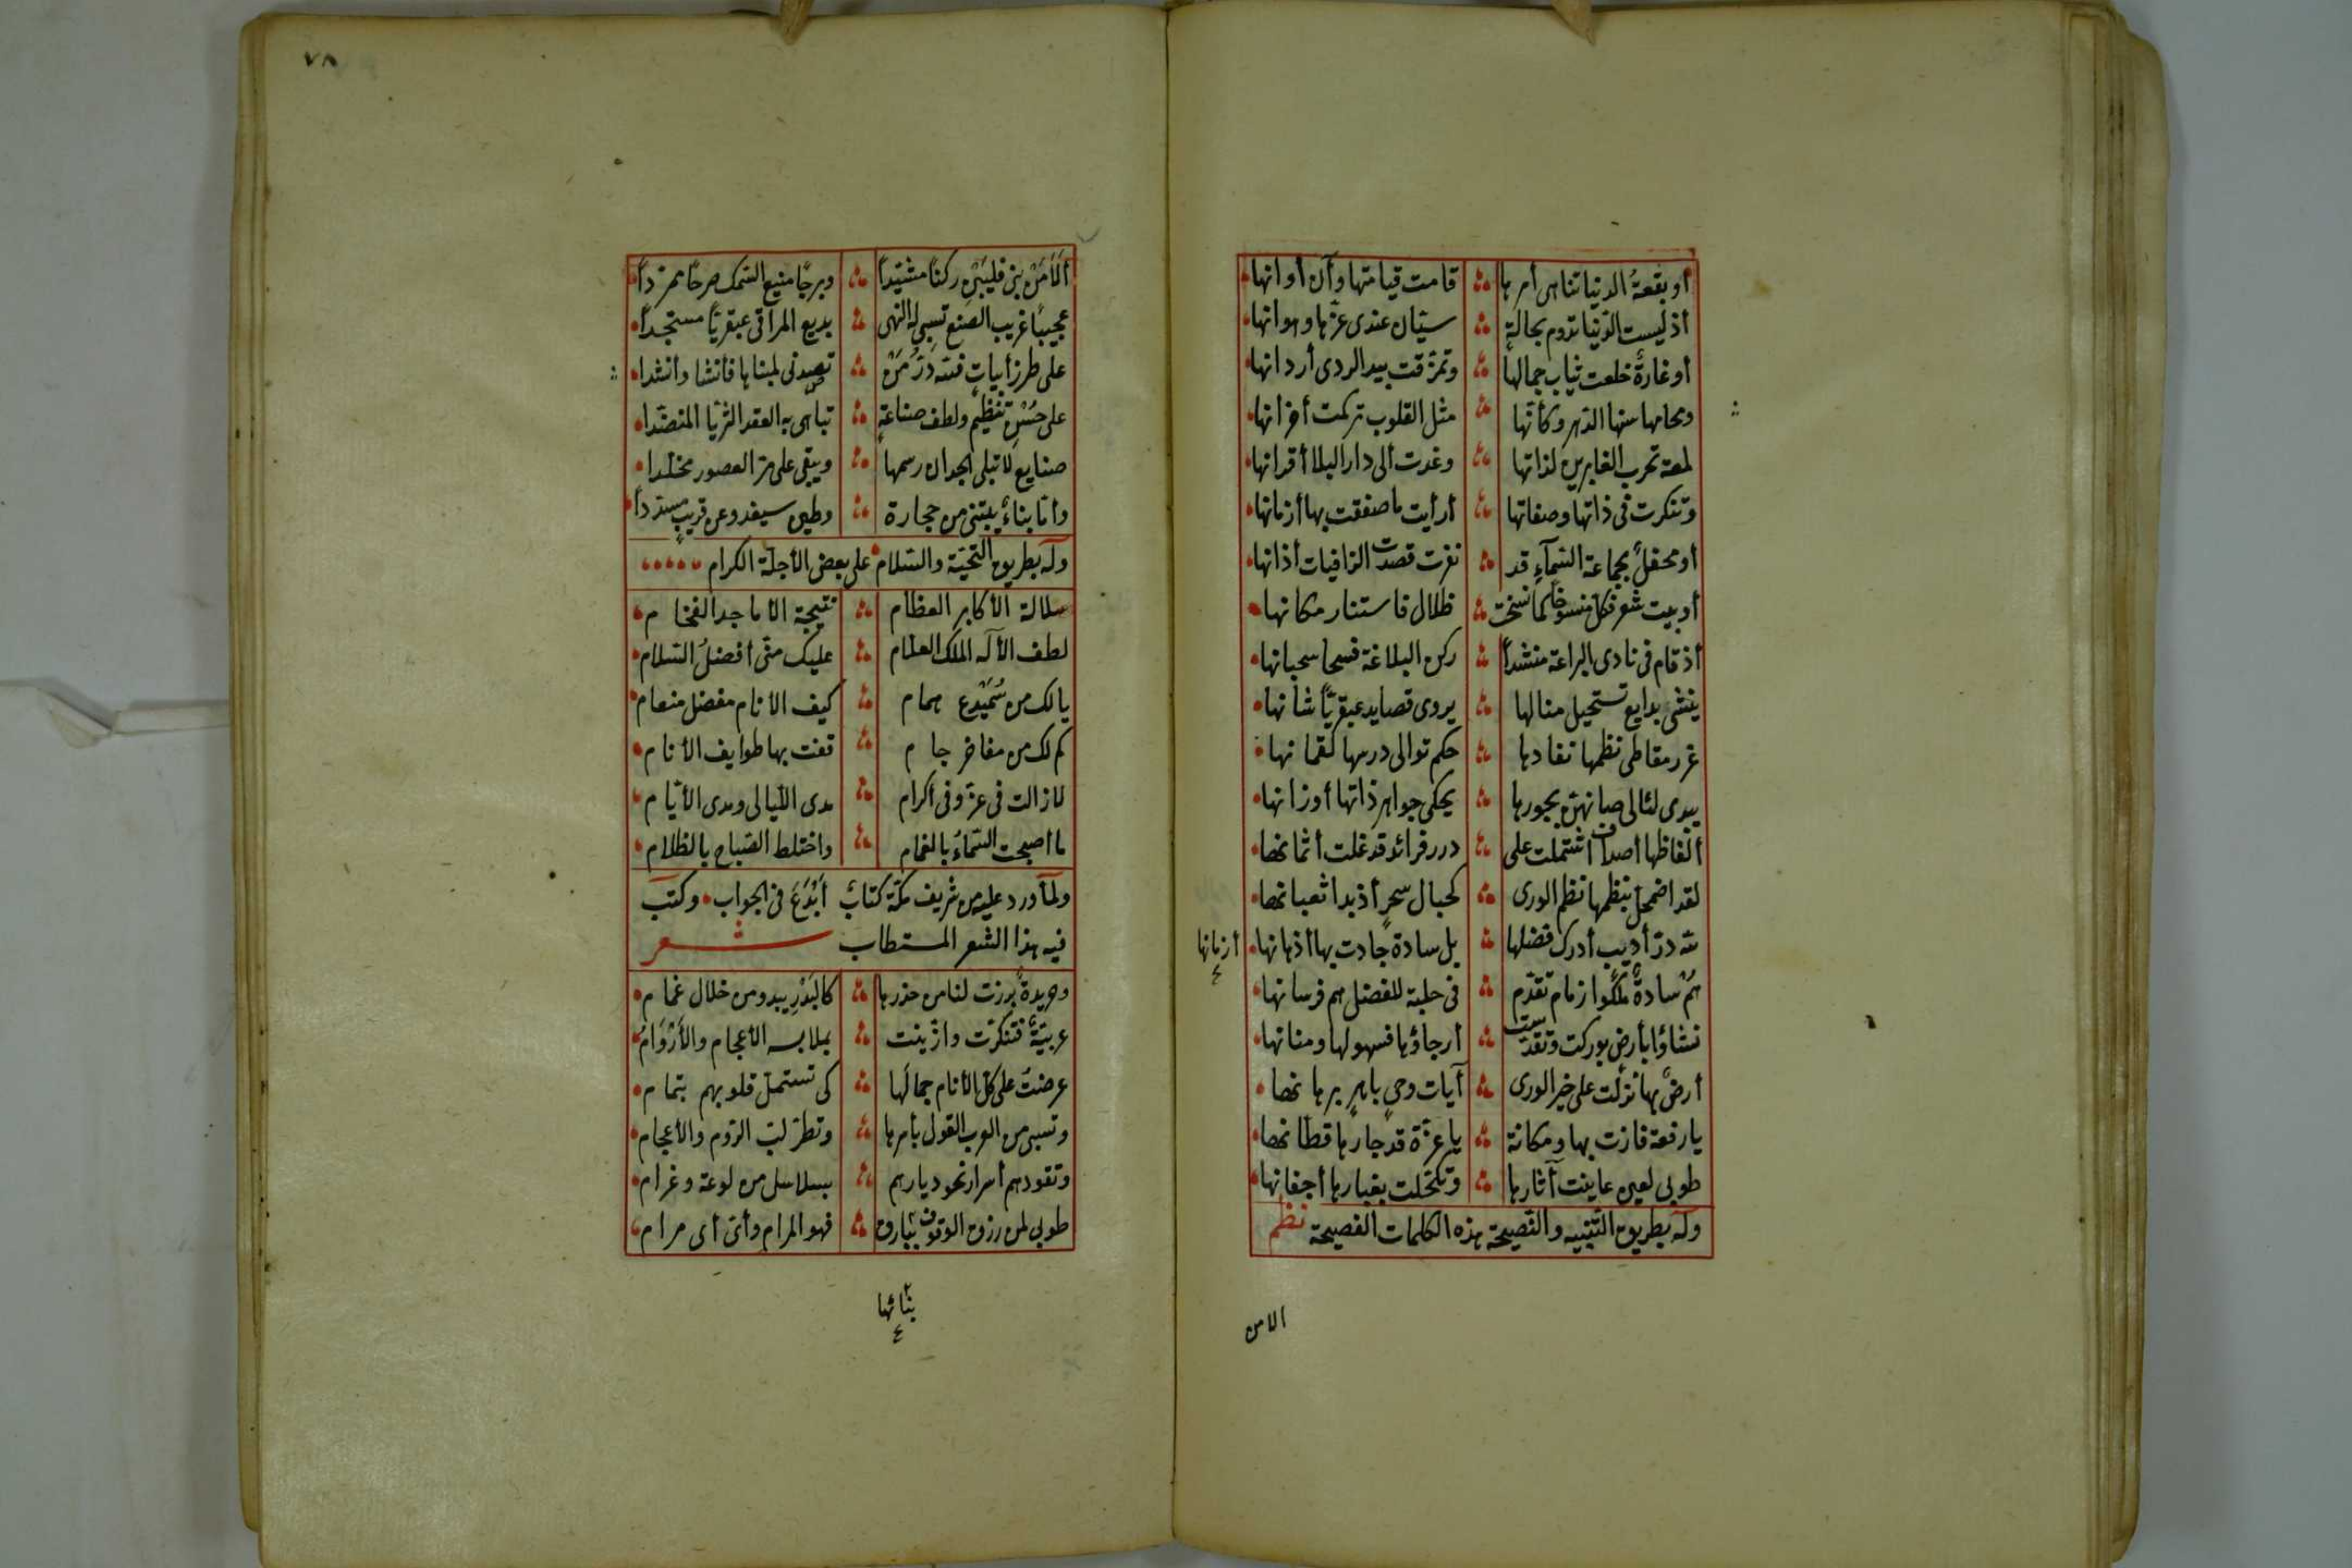 أو بقعةُ الدنيا تناهى أمرها قامت قيامتها وآن أوانها
أذ ليست الدّنيا تدوم بحالةٍ سيّان عندى عزّها وهوانها
أو غادةٌ خلعت ثياب جمالها وتمزقت بيد الردى أردانها
ومحامها سنها الدهر وكأنّها مثل القلوب تركمت أحزانها
لمعة تحرب الغابرين لذاتها وغدت ألى دار البلا أقرانها
وتنكرت فى ذاتها وصفاتها أرأيت ما صفقت بها أزمانها
أو محفلٌ بجماعة السّمآءِ قد نفرت قصدت الزافيات أذانها
أو بيت شعر فكل منسوخاً كما نسخت ظلال فاستنار مكانها
أذ قام فى نادى البراعة منشداً ركن البلاغة قسحا سحبانها
ينشى بدايع تستحيل منالها يروى قصايد عبقريّاً شانها
غرر مقاطى نظمها نفادها حكم توالى درسها لقمانها
يبدى لئالى صانهن بحورها يحكى جواهر ذاتها أوزانها
ألفاظها أصداف اشتملت على درر فرائد قد غلت أثمانها
لقد اضمحل بنظمها نظم الورى كحبال سحرٍ أذ بدا ثعبانها
لله درّ أديب أدرك فضلها بل سادة جادت بها أذهانها
أزمانها
هُمْ سادةٌ ملكُوا زمام تقدّم فى حلبة للفضل هم فرسانها
نشاؤا بأرض بوركت وتقدّست أرجاؤها فسهولها ومنانها
أرضٌ بها نزلت على خير الورى آيات وحىٍ باهرٍ برهانها
يا رفعة فازت بها ومكانة يا عزّة قد جارها قطانها
طوبى لعين عاينت آثارها وتكحّلت بغبارها أجفانها
وله بطريق التّنبيه والنّصيحة بهذه الكلمات الفصيحة نظم
الامن
٧٨
ألَا مَنْ بنى فليبَنِ ركناً مشيّداً وبرجًا منيع السّمك صرحًا ممرّداً
عجيبًا غريب الصنع تسبى له النهى بديع المراقى عبقريًا مستجداً
على طرز أبياتٍ فلله دَرُّ مَنْ تصدى لمبناها فأنشا وأنشدا
على حُسْنِ تنظيم ولطف صناعةٍ تباهى به العقد الثريّا المنضّدا
صنايع لا تبلى الجدان رسمها ويبقى على مرّ العصور مخلّدا
وأما بناءٌ يبتنى من حجارة وطين سيغدو عن قريبٍ مبدّداً
وله بطريق التّحيّة والسّلام على بعض الأجلّة الكرام
سلالة الأكابر العظام نتيجة الأماجد الفخام
لطف الأله الملك العلّام عليك منّى أفضلُ السّلام
يا لك من سَمَيْدع همام كيف الانام مفضل منعام
كم لك من مفاخر جام قفت بها طوايف الأنام
لا زالت فى عزّ وفى أكرام مدى اللّيالى ومدى الأيّام
ما أصبحت السّماءُ بالغمام واختلط الصّباح بالظلام
ولمّا ورد عليه من شريف مكّة كتابٌ أَبْدَعَ فى الجواب وكتب
فيه هذا الشعر المستطاب شعر
وخريدةٌ برزت لنا من خدرها كالبَدْرِ يبدو من خلال غمام
عربيّةٌ فتنكرّت وازّينت بملابس الأعجام والأَرْوَام
عرضت على كل الأنام جمالَها كى تستمل قلوبهم بتمام
وتسبى من العرب القول بأمرها وتطرّ لبّ الرّوم والأعجام
وتقودهم أسرا نحو ديارهم بسلاسل من لوعة وغرام
طوبى لمن رزق الوقوف ببّارق فهو المرام وأىّ أى مرام
بنائها